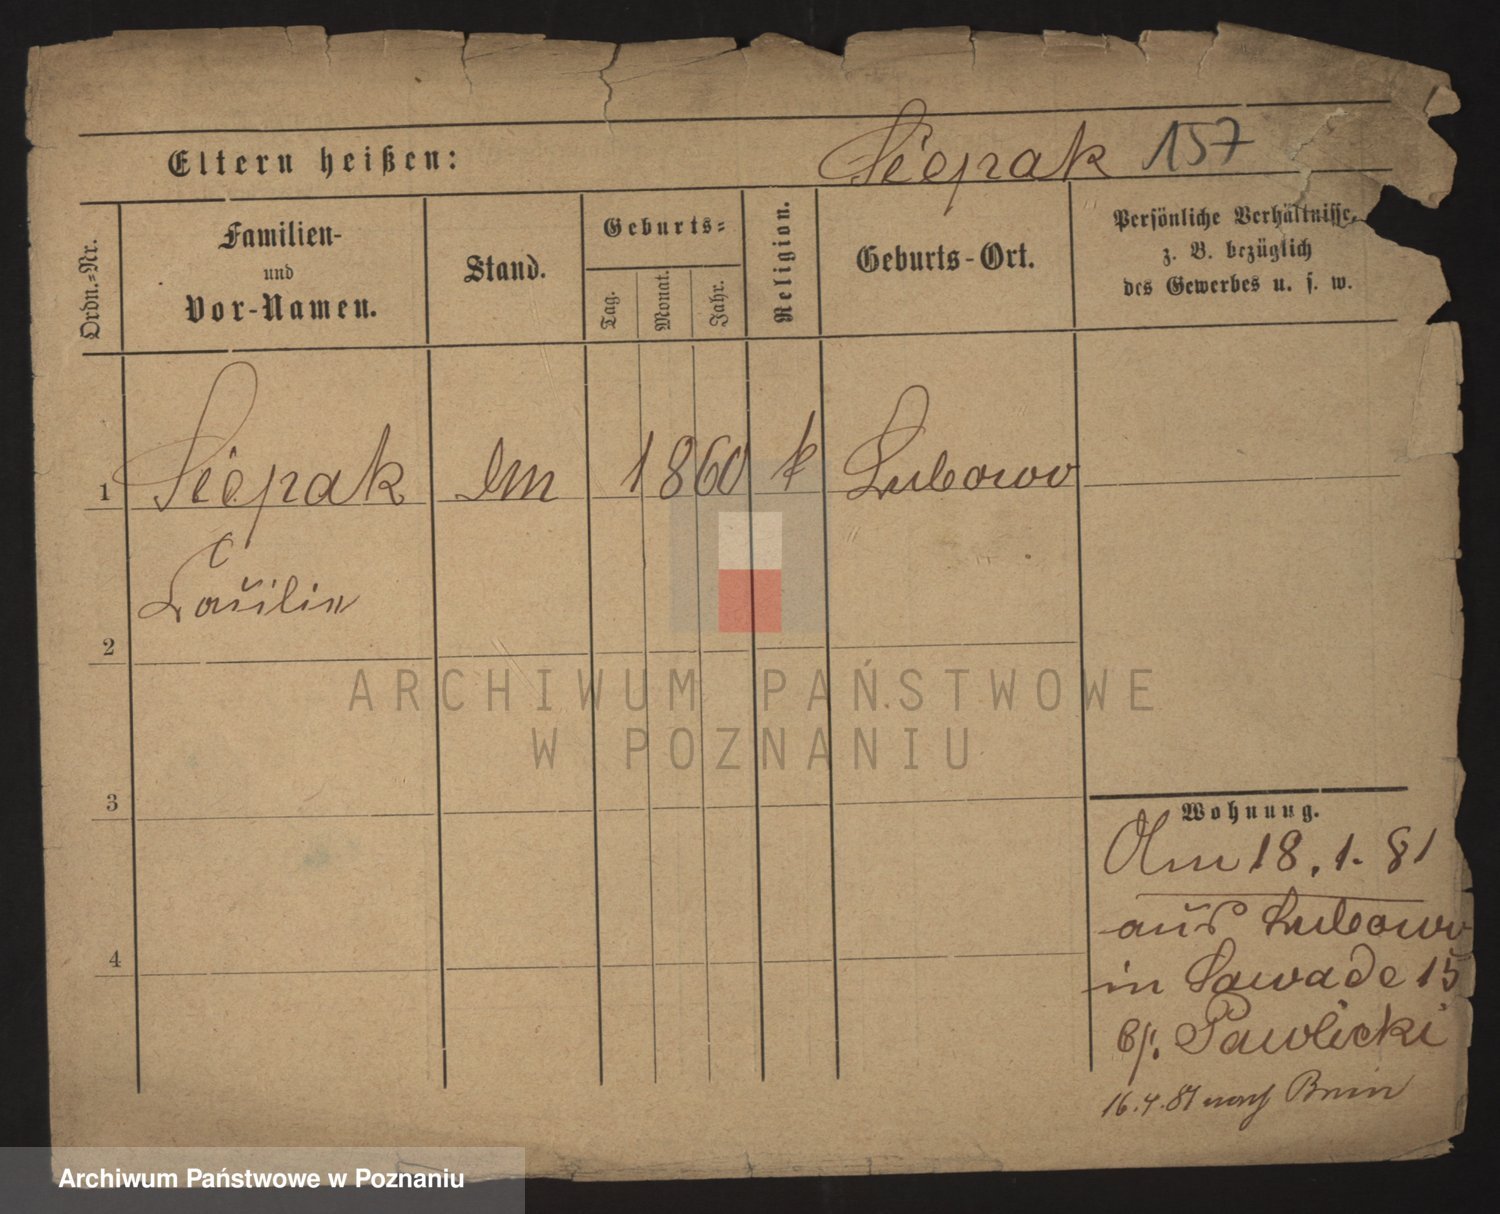 Eltern heißen:
Siepak 157
Ordn.-Nr.
Familien-
und
Vor-Namen.
Stand.
Geburts-
Tag.
Monat.
Jahr.
Religion.
Geburts-Ort.
Persönliche Verhältnisse,
z. B. bezüglich
des Gewerbes u. s. w.
1 Siepak 1860 k Lubowo
2
3
4
Wohnung.
18. 1. 81
aus Lubowo
in Zawade 15
b/. Pawlicki
16. 4. 81 nach Bnin
ARCHIWUM PAŃSTWOWE
W POZNANIU
Archiwum Państwowe w Poznaniu